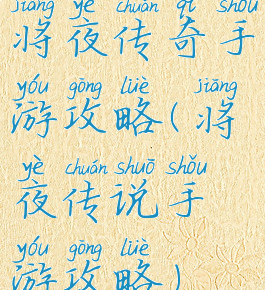 jiāng yè chuán qí shǒu
将夜传奇手
yóu gōng lüè jiāng
游攻略(将
yè chuán shuō shǒu
夜传说手
yóu gōng lüè
游攻略)